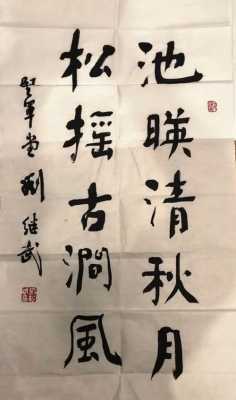 池暎清秋月
松摇古澗風
劉继武